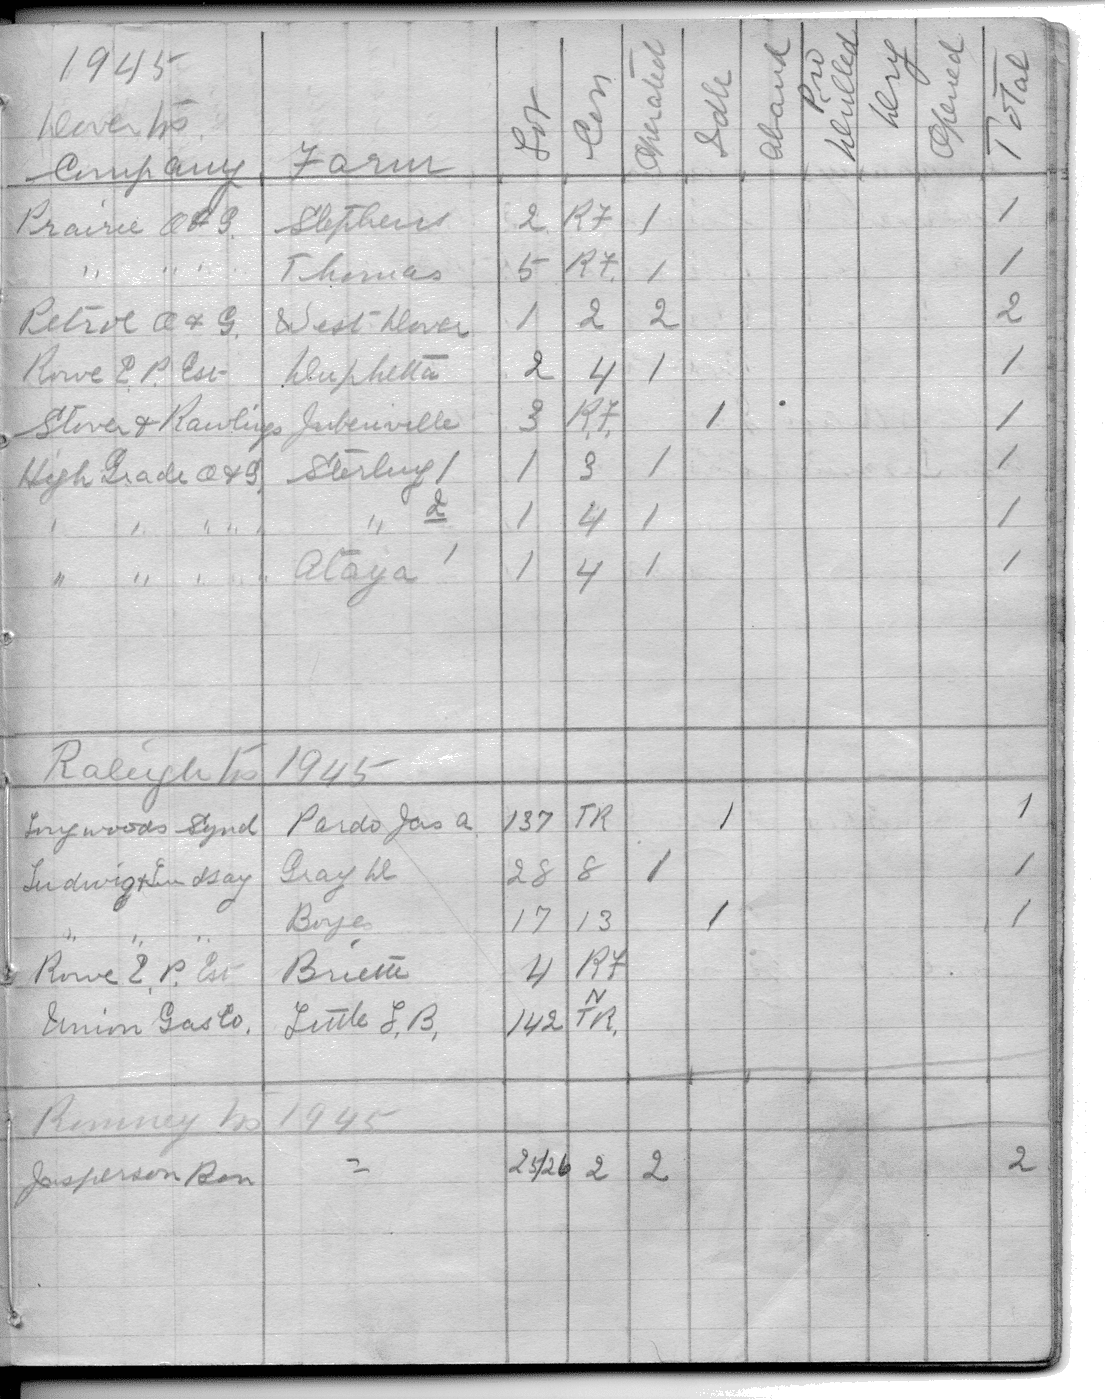 1945
Dover Tp.
Company Farm Lot Con Operated Idle Aband Pro Drilled Dry Opened Total
Prairie O & G. Stephens 2 R7 1 1
" " " Thomas 5 R7. 1 1
Petrol O & G. West Dover 1 2 2 2
Rowe E. P. Est 2 4 1 1
Stover & Rawlings Jubenville 3 R.7. 1 1
High Grade O & G. Sterling 1 1 3 1 1
" " " " " 2 1 4 1 1
" " " " Ataya 1 1 4 1 1
Raleigh Tp 1945
Longwoods Synd Pardo Jas A. 137 TR 1 1
Ludwig & Lindsay Gray D 28 8 1 1
" " " Boyes 17 13 1 1
Rowe E. P. Est Briette 4 R7
Union Gas Co. Little L. B. 142 N TR.
Romney Tp 1945
Jasperson Bon = 25/26 2 2 2